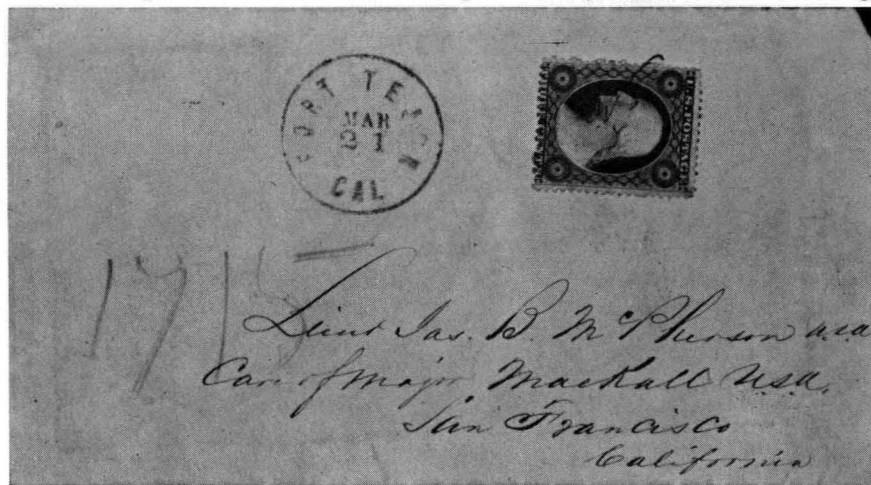 FORT TEJON
MAR
21
CAL
U.S. POSTAGE
1715
Lieut Jas. B. McPherson U.S.A.
Care of Major Mackall U.S.A.
San Francisco
California